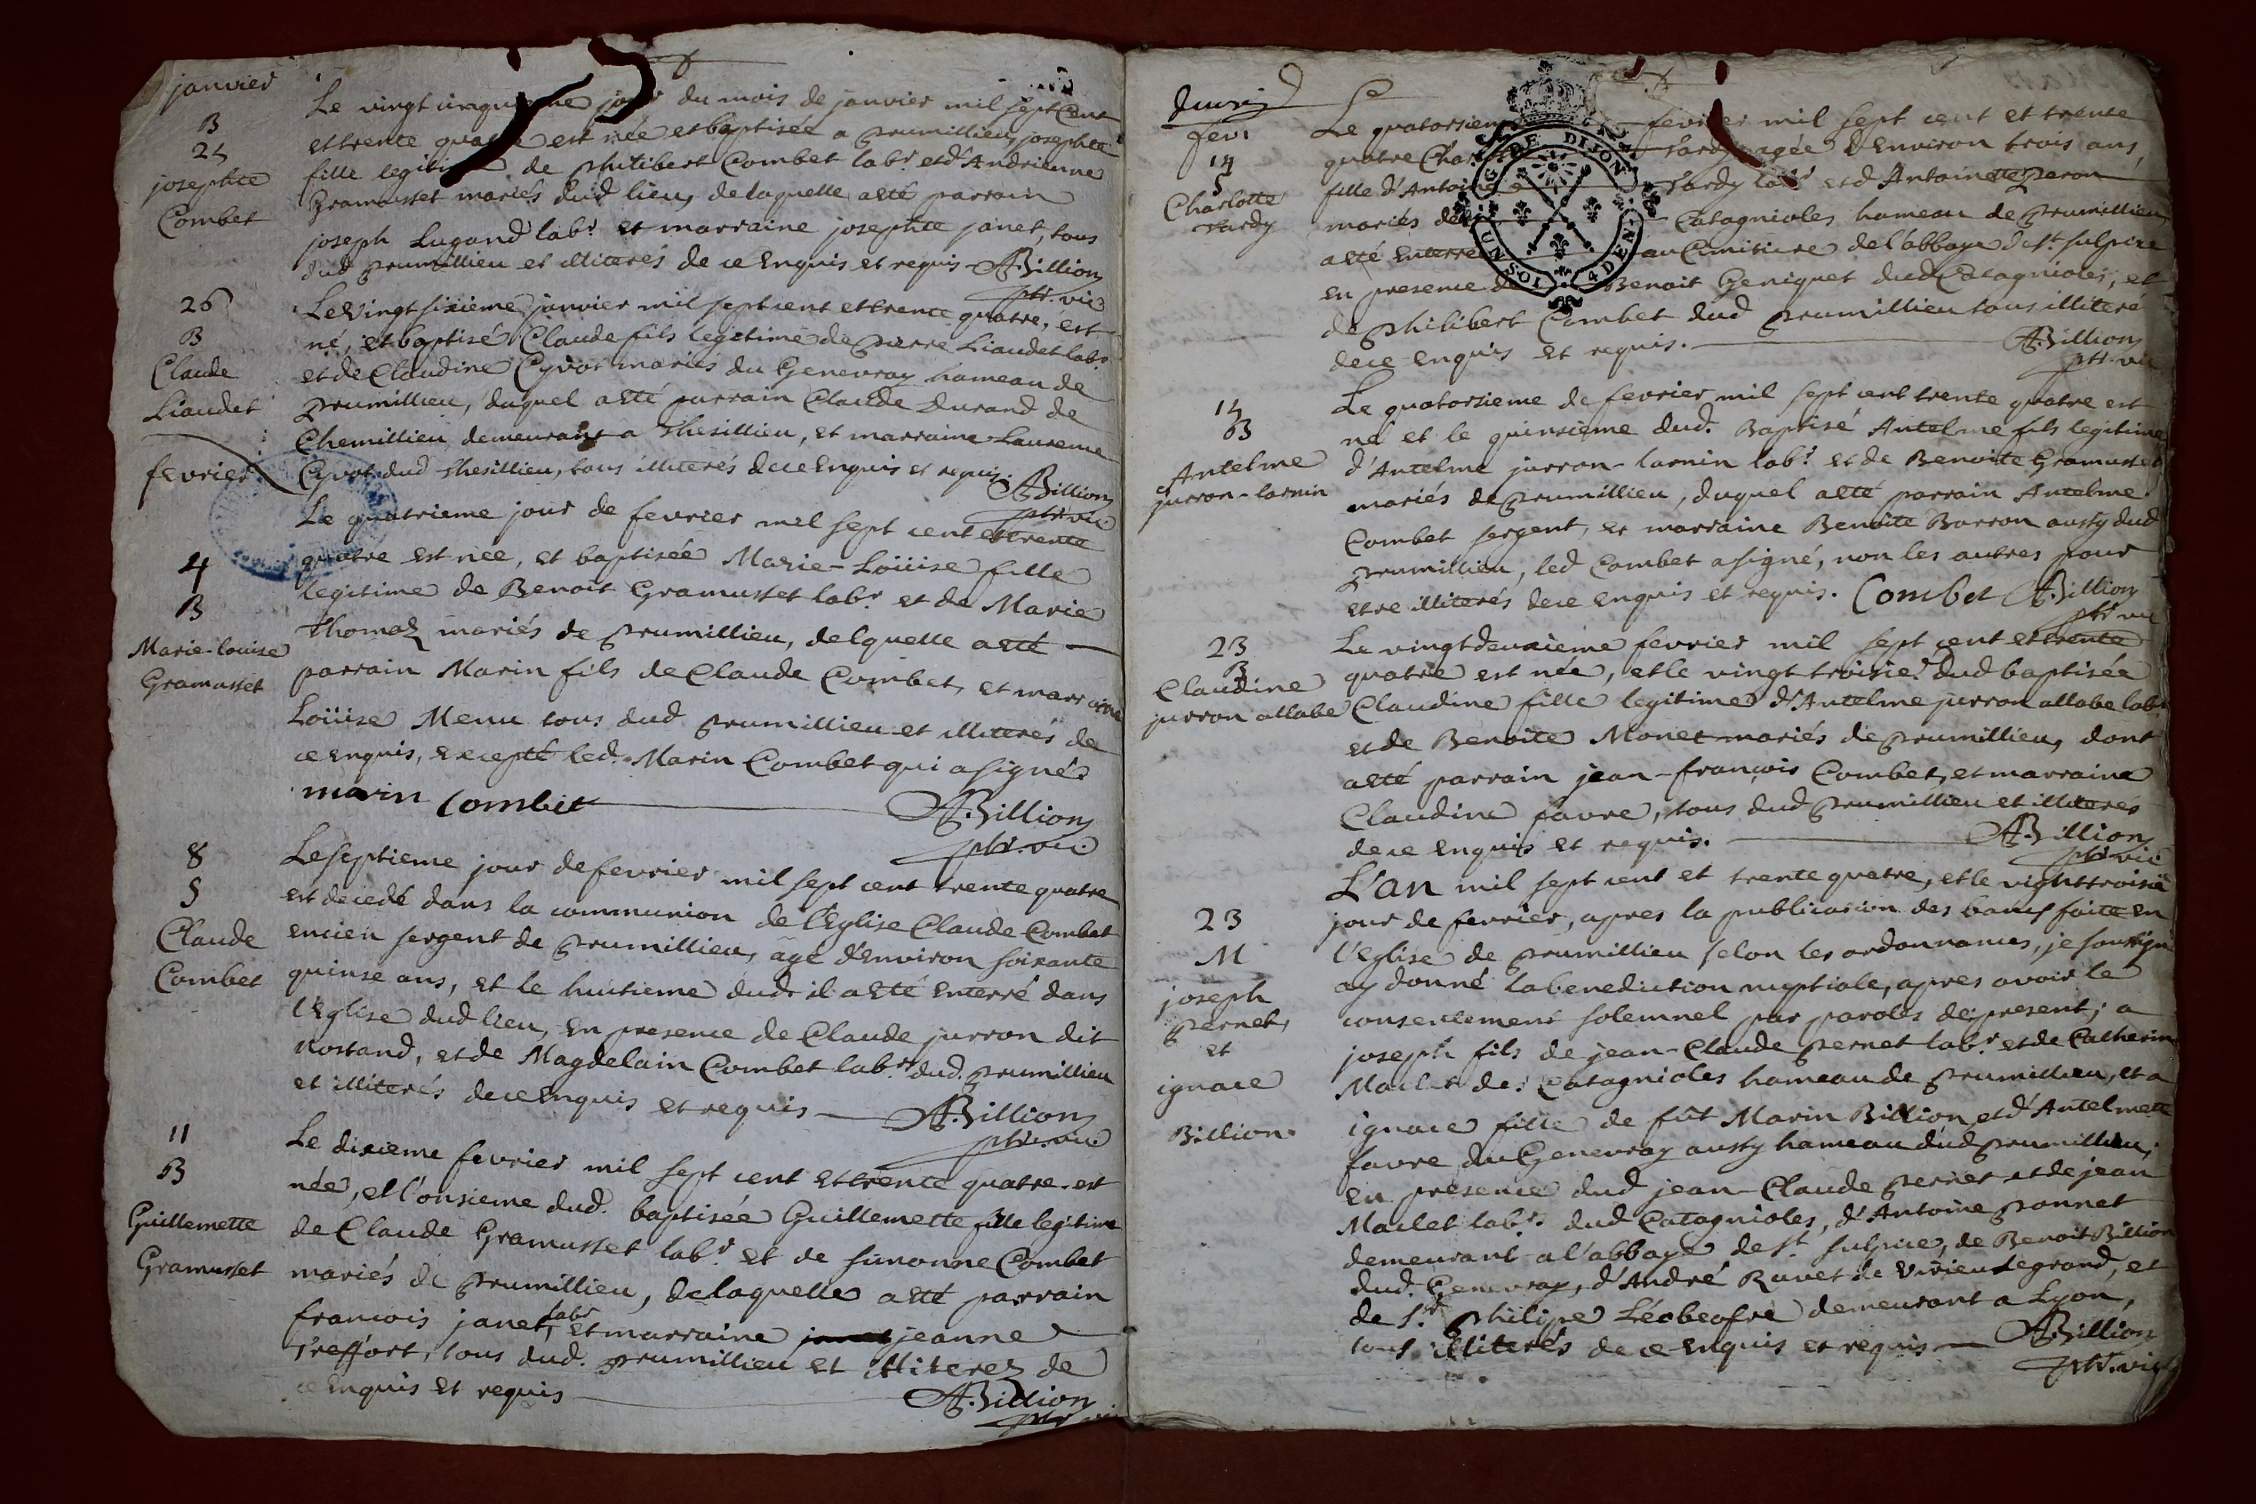 janvier
B
25
josephte
Combet
Le vingt cinquieme jour du mois de janvier mil sept cent
et trente quatre est née et baptisée a prumillieu, josephte
fille legitime de philibert Combet labr. et d'Andrienne
Gramusset mariés dud lieu, de laquelle a eté parrain
joseph Lugand labr. et marraine josephte janet, tous
dud prumillieu et illiterés de ce enquis et requis. A. Billion
ptr. vic
26
B
Claude
Liaudet
Le vingt sixieme janvier mil sept cent et trente quatre, est
né, et baptisé Claude fils legitime de pierre Liaudet labr.
et de Claudine Cyvot mariés du Genevray hameau de
prumillieu, duquel a eté parrain Claude Durand de
Chemillieu demeurant a thesillieu, et marraine Laurence
Cyvot dud thesillieu, tous illiterés de ce enquis et requis. A. Billion
ptr. vic
fevrier
4
B
Marie-louise
Gramusset
Le quatrieme jour de fevrier mil sept cent et trente
quatre est née, et baptisée Marie-Loüise fille
legitime de Benoit Gramusset labr. et de Marie
thomaz mariés de prumillieu, delquelle a eté
parrain Marin fils de Claude Combet, et marraine
Loüise Menu tous dud prumillieu et illiterés de
ce enquis, excepté led. Marin Combet qui a signé.
marin Combet A. Billion
ptr. vic.
8
S
Claude
Combet
Le septieme jour de fevrier mil sept cent trente quatre
est decedé dans la communion de l'Eglise Claude Combet
encien sergent de prumillieu, agé d'environ soixante
quinse ans, et le huitieme dud. il a eté enterré dans
l'Eglise dud lieu, en presence de Claude jurron dit
Rostand, et de Magdelain Combet labrs. dud. prumillieu
et illiterés de ce enquis et requis A. Billion
ptr. vic.
11
B
Guillemette
Gramusset
Le dixieme fevrier mil sept cent et trente quatre est
née, et l'onsieme dud. baptisée Guillemette fille legitime
de Claude Gramusset labr. et de simonne Combet
mariés de prumillieu, de laquelle a eté parrain
francois janet, labr et marraine jeanne
treffort, tous dud. prumillieu et illiterez de
ce enquis et requis A. Billion
ptr. vi
fevr
14
S
Charlotte
tardy
Le quatorsieme fevrier mil sept cent et trente
quatre tardy agée d'Environ trois ans,
fille d'Antoine tardy labr. et d'Antoinette peron
mariés de Catagnioles hameau de prumillieu,
a eté enterrée au Cimitiere de l'abbaye de st. sulpice
en presence de Benoit Geniquet dud Catagnioles, et
de philibert Combet dud prumillieu tous illiteré
de ce enquis et requis. A. Billion
ptr. vic
G. DE DIJON
UN SOL 4 DEN
14
B
Antelme
jurron-larnin
Le quatorsieme de fevrier mil sept cent trente quatre est
né et le quinsieme dud. Baptisé Antelme fils legitime
d'Antelme jurron-larnin labr. et de Benoite Gramusset
mariés de prumillieu, duquel a eté parrain Antelme
Combet sergent, et marraine Benoite Barron aussy dud
prumillieu, led Combet a signé, non les autres pour
etre illiterés de ce enquis et requis. Combet A. Billion
ptr. vic
23
B
Claudine
jurron allabe
Le vingt deuxieme fevrier mil sept cent et trente
quatre est née, et le vingt troisie. dud baptisée
Claudine fille legitime d'Antelme jurron allabe labr
et de Benoite Monet mariés de prumillieu, dont
a eté parrain jean-françois Combet, et marraine
Claudine favre, tous dud prumillieu et illiterés
de ce enquis et requis. A. Billion
ptr. vic
23
M
joseph
pernet,
et
ignace
Billion.
L'an mil sept cent et trente quatre, et le vight troisie
jour de fevrier, apres la publication des bancs faite en
l'Eglise de prumillieu selon les ordonnances, je soussigné
ay donné la benediction nuptiale, apres avoir le
consentement solemnel par paroles de present, a
joseph fils de jean-Claude pernet labr. et de Catherin
Maclet de Catagnioles hameau de prumillieu, et a
ignace fille de fût Marin Billion et d'Antelmette
favre du Genevray aussy hameau dud prumillieu,
en presence dud jean-Claude pernet et de jean
Maclet labrs. dud Catagnioles, d'Antoine ponnet
demeurant a l'abbaye de st. sulpice, de Benoit Billion
dud. Genevray, d'André Ravet de virieu Legrand, et
de sr. philipe demeurant a Lyon,
tous illiterés de ce enquis et requis A. Billion
ptr. vic